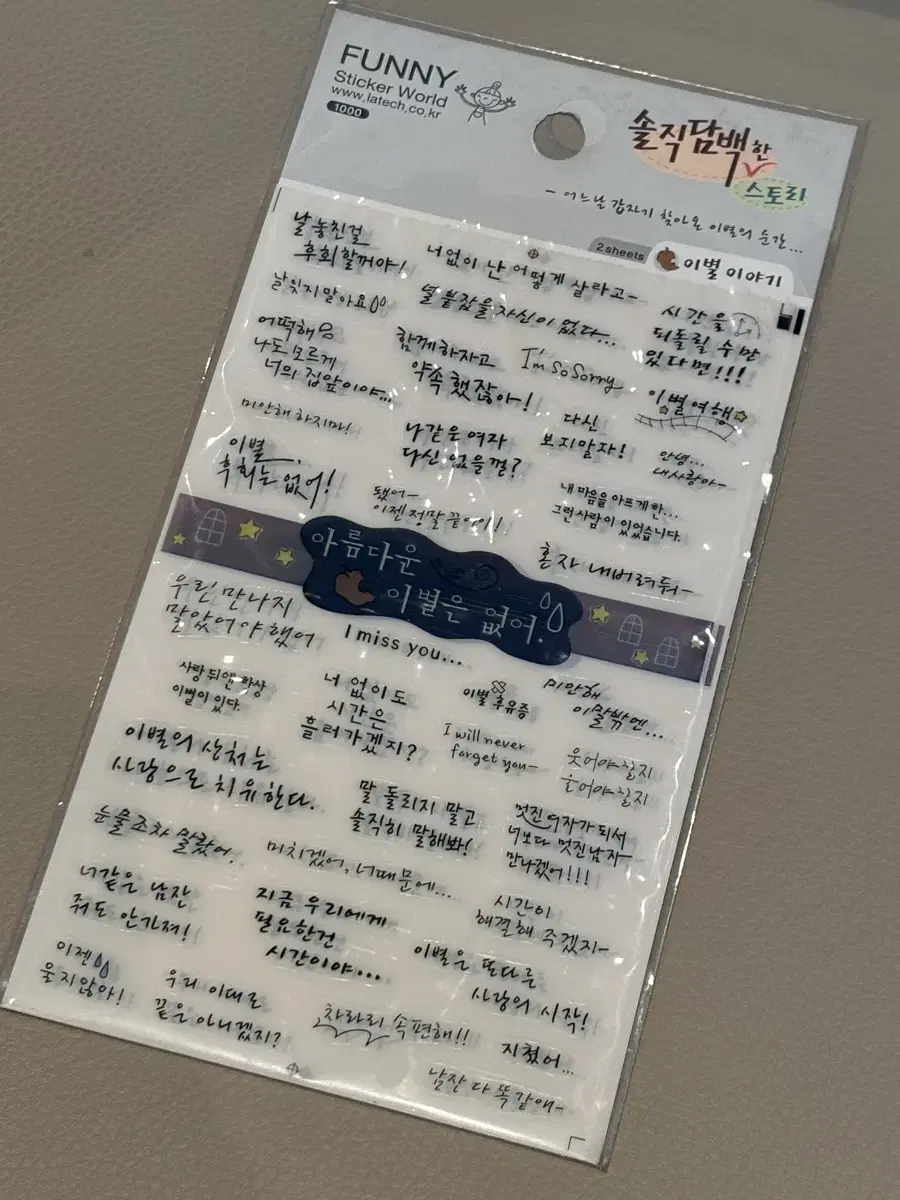 FUNNY
Sticker World
www.latech.co.kr
1000
솔직담백한
스토리
- 어느날 갑자기 찾아온 이별의 순간...
2sheets
이별 이야기
날 놓친걸
후회할꺼야!
너없이 난 어떻게 살라고~
널 붙잡을 자신이 없다...
시간을
되돌릴 수만
있다면!!!
날 잊지말아요
어떡해
나도 모르게
너의 집앞이야...
함께하자고
약속했잖아!
I'm So Sorry
이별여행
미안해 하지마!
나같은 여자
다신 없을껄?
다신
보지말자!
안녕...
내사랑아~
이별
후회는 없어!
됐어~
이젠 정말 끝이야!
내 마음을 아프게 한...
그런 사람이 있었습니다.
혼자 내버려둬~
아름다운
이별은 없어.
우린 만나지
말았어야 했어
I miss you...
사랑 뒤엔 항상
이별이 있다.
너 없이도
시간은
흘러가겠지?
이별 후유증
미안해
이 말밖엔...
I will never
forget you~
웃어야 할지
울어야 할지
이별의 상처는
사랑으로 치유한다.
말 돌리지 말고
솔직히 말해봐!
멋진여자가 되서
너보다 멋진남자
만나겠어!!!
눈물조차 말랐어.
미치겠어, 너때문에...
너같은 남잔
줘도 안가져!
지금 우리에게
필요한건
시간이야...
시간이
해결해 주겠지~
이별은 또다른
사랑의 시작!
이젠
울지않아!
우리 이대로
끝은 아니겠지?
차라리 속편해!!
지쳤어...
남잔 다 똑같애~